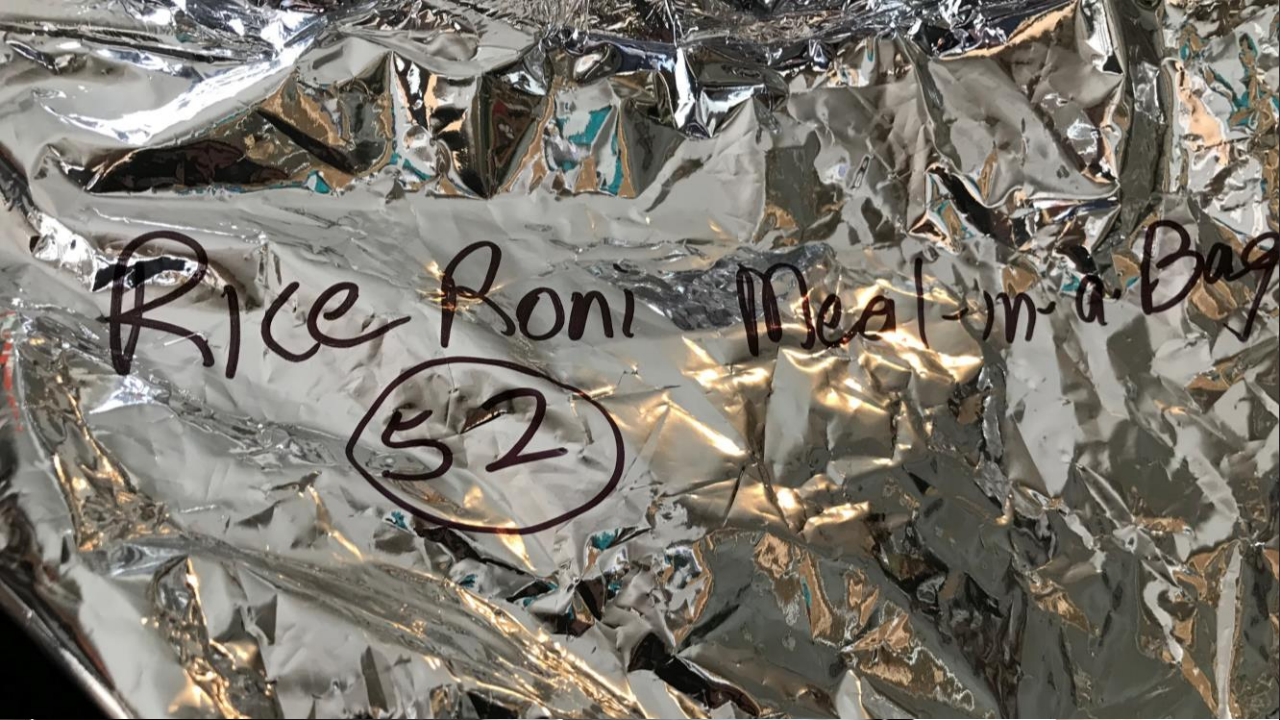 Rice Roni Meal-in-a-Bag
52